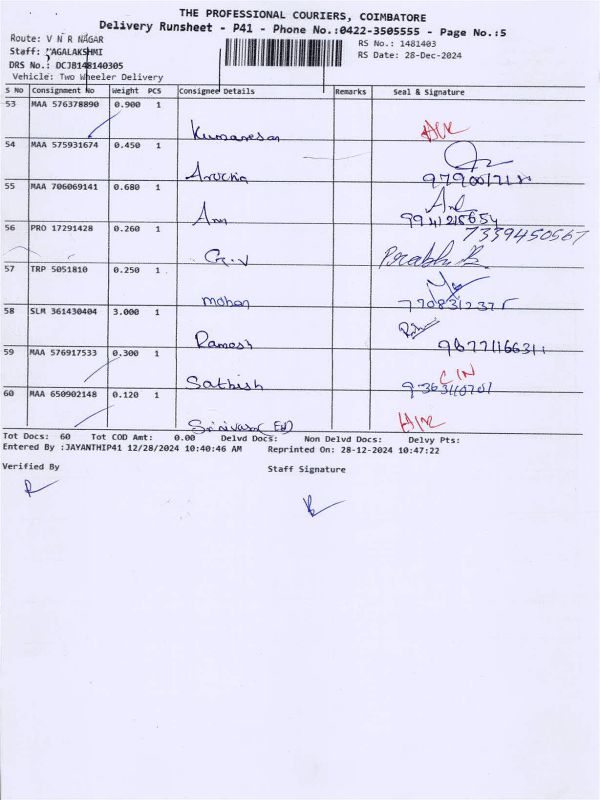 THE PROFESSIONAL COURIERS, COIMBATORE
Delivery Runsheet - P41 - Phone No.:0422-3505555 - Page No.:5
Route: V N R NAGAR
RS No.: 1481403
Staff: NAGALAKSHMI
RS Date: 28-Dec-2024
DRS No.: DCJB148140305
Vehicle: Two Wheeler Delivery
S No Consignment No Weight PCS Consignee Details Remarks Seal & Signature
53 MAA 576378890 0.900 1
Kumaresan
54 MAA 575931674 0.450 1
55 MAA 706069141 0.680 1
9941215654
7339450567
56 PRO 17291428 0.260 1
G.V Prabhu
57 TRP 5051810 0.250 1
mohan 7708312375
58 SLM 361430404 3.000 1
Ramesh
59 MAA 576917533 0.300 1
Sathish
60 MAA 650902148 0.120 1
Tot Docs: 60 Tot COD Amt: 0.00 Delvd Docs: Non Delvd Docs: Delvy Pts:
Entered By :JAYANTHIP41 12/28/2024 10:40:46 AM Reprinted On: 28-12-2024 10:47:22
Verified By Staff Signature